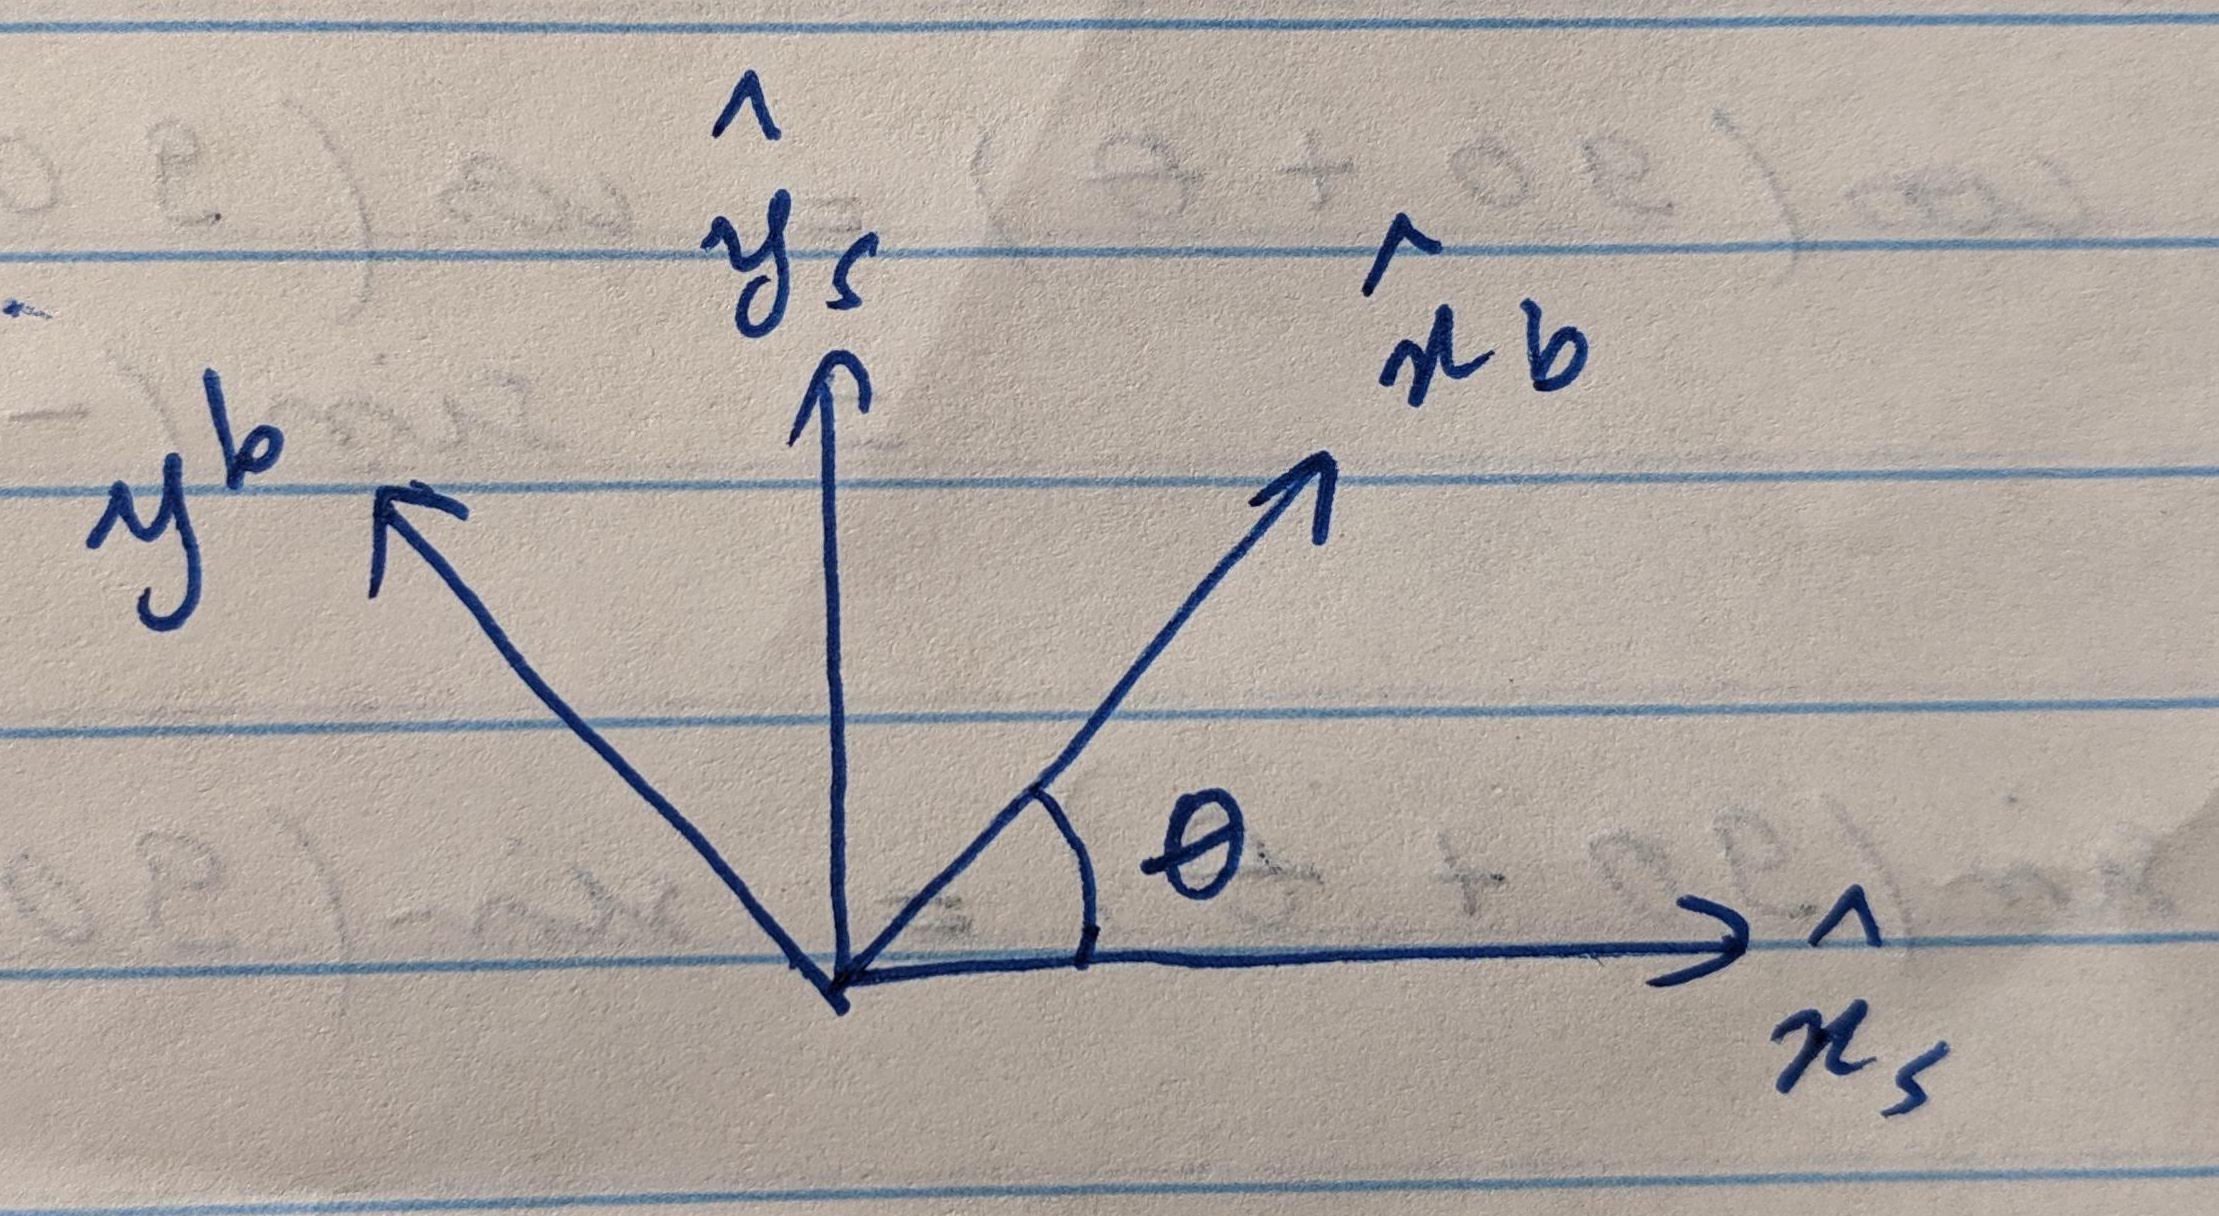 ŷs
x̂b
yb
θ
x̂s